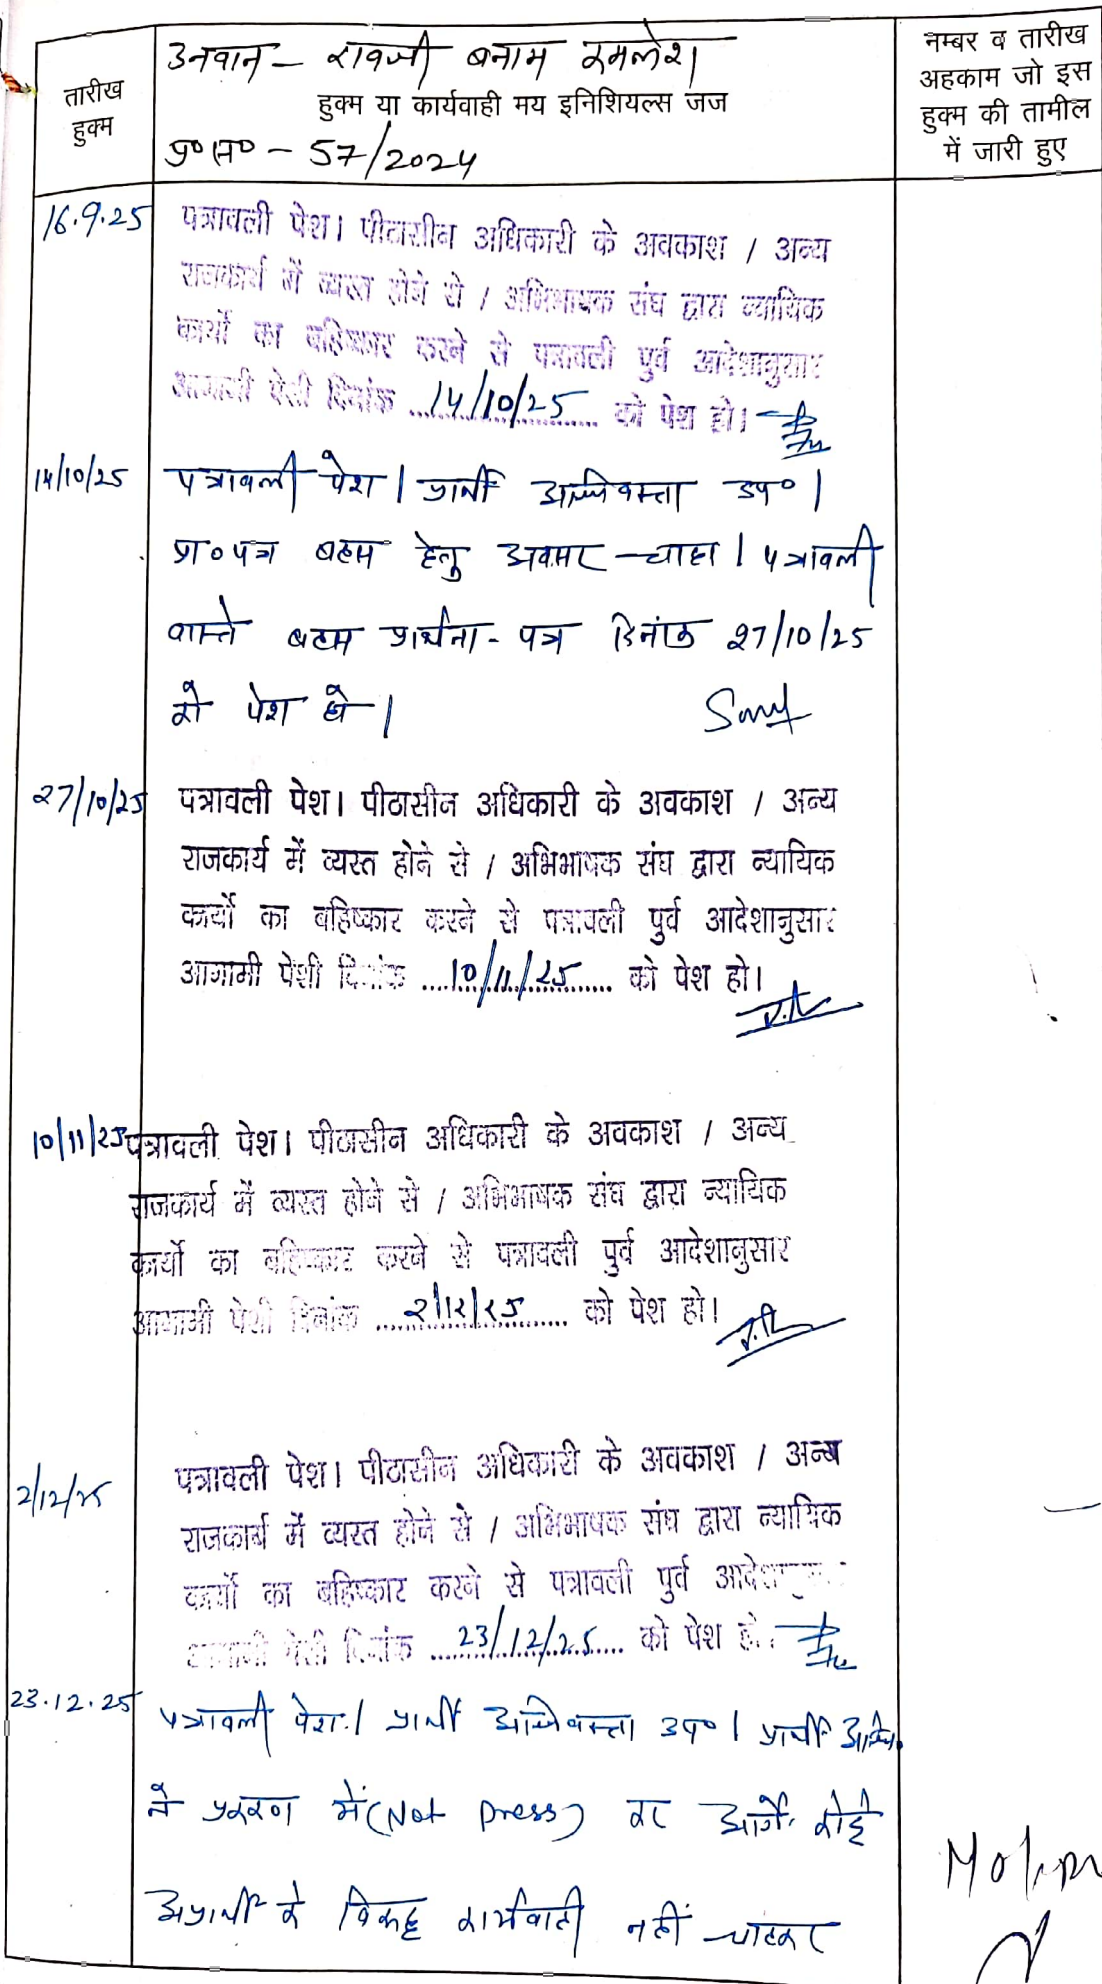 तारीख
हुक्म
उनवान – रावजी बनाम कमलेश
हुक्म या कार्यवाही मय इनिशियल्स जज
प्र०स० – 57/2024
नम्बर व तारीख
अहकाम जो इस
हुक्म की तामील
में जारी हुए
16.9.25
पत्रावली पेश। पीठासीन अधिकारी के अवकाश / अन्य
राजकार्य में व्यस्त होने से / अभिभाषक संघ द्वारा न्यायिक
कार्यों का बहिष्कार करने से पत्रावली पुर्व आदेशानुसार
आगामी पेशी दिनांक ...14/10/25... को पेश हो।
14/10/25
पत्रावली पेश। प्रार्थी अधिवक्ता उप०।
प्रा०पत्र बहस हेतु अवसर चाहा। पत्रावली
वास्ते बहस प्रार्थना-पत्र दिनांक 27/10/25
को पेश हो।
27/10/25
पत्रावली पेश। पीठासीन अधिकारी के अवकाश / अन्य
राजकार्य में व्यस्त होने से / अभिभाषक संघ द्वारा न्यायिक
कार्यों का बहिष्कार करने से पत्रावली पुर्व आदेशानुसार
आगामी पेशी दिनांक ....10/11/25.... को पेश हो।
10/11/25
पत्रावली पेश। पीठासीन अधिकारी के अवकाश / अन्य
राजकार्य में व्यस्त होने से / अभिभाषक संघ द्वारा न्यायिक
कार्यों का बहिष्कार करने से पत्रावली पुर्व आदेशानुसार
आगामी पेशी दिनांक ....2/12/25.... को पेश हो।
2/12/25
पत्रावली पेश। पीठासीन अधिकारी के अवकाश / अन्य
राजकार्य में व्यस्त होने से / अभिभाषक संघ द्वारा न्यायिक
कार्यों का बहिष्कार करने से पत्रावली पुर्व
आगामी पेशी दिनांक ....23/12/25.... को पेश हो।
23.12.25
पत्रावली पेश। प्रार्थी अधिवक्ता उप०। प्रार्थी अधि०
ने प्रकरण में (Not press) कर आगे कोई
अप्रार्थी के विरूद्ध कार्यवाही नहीं चाहकर